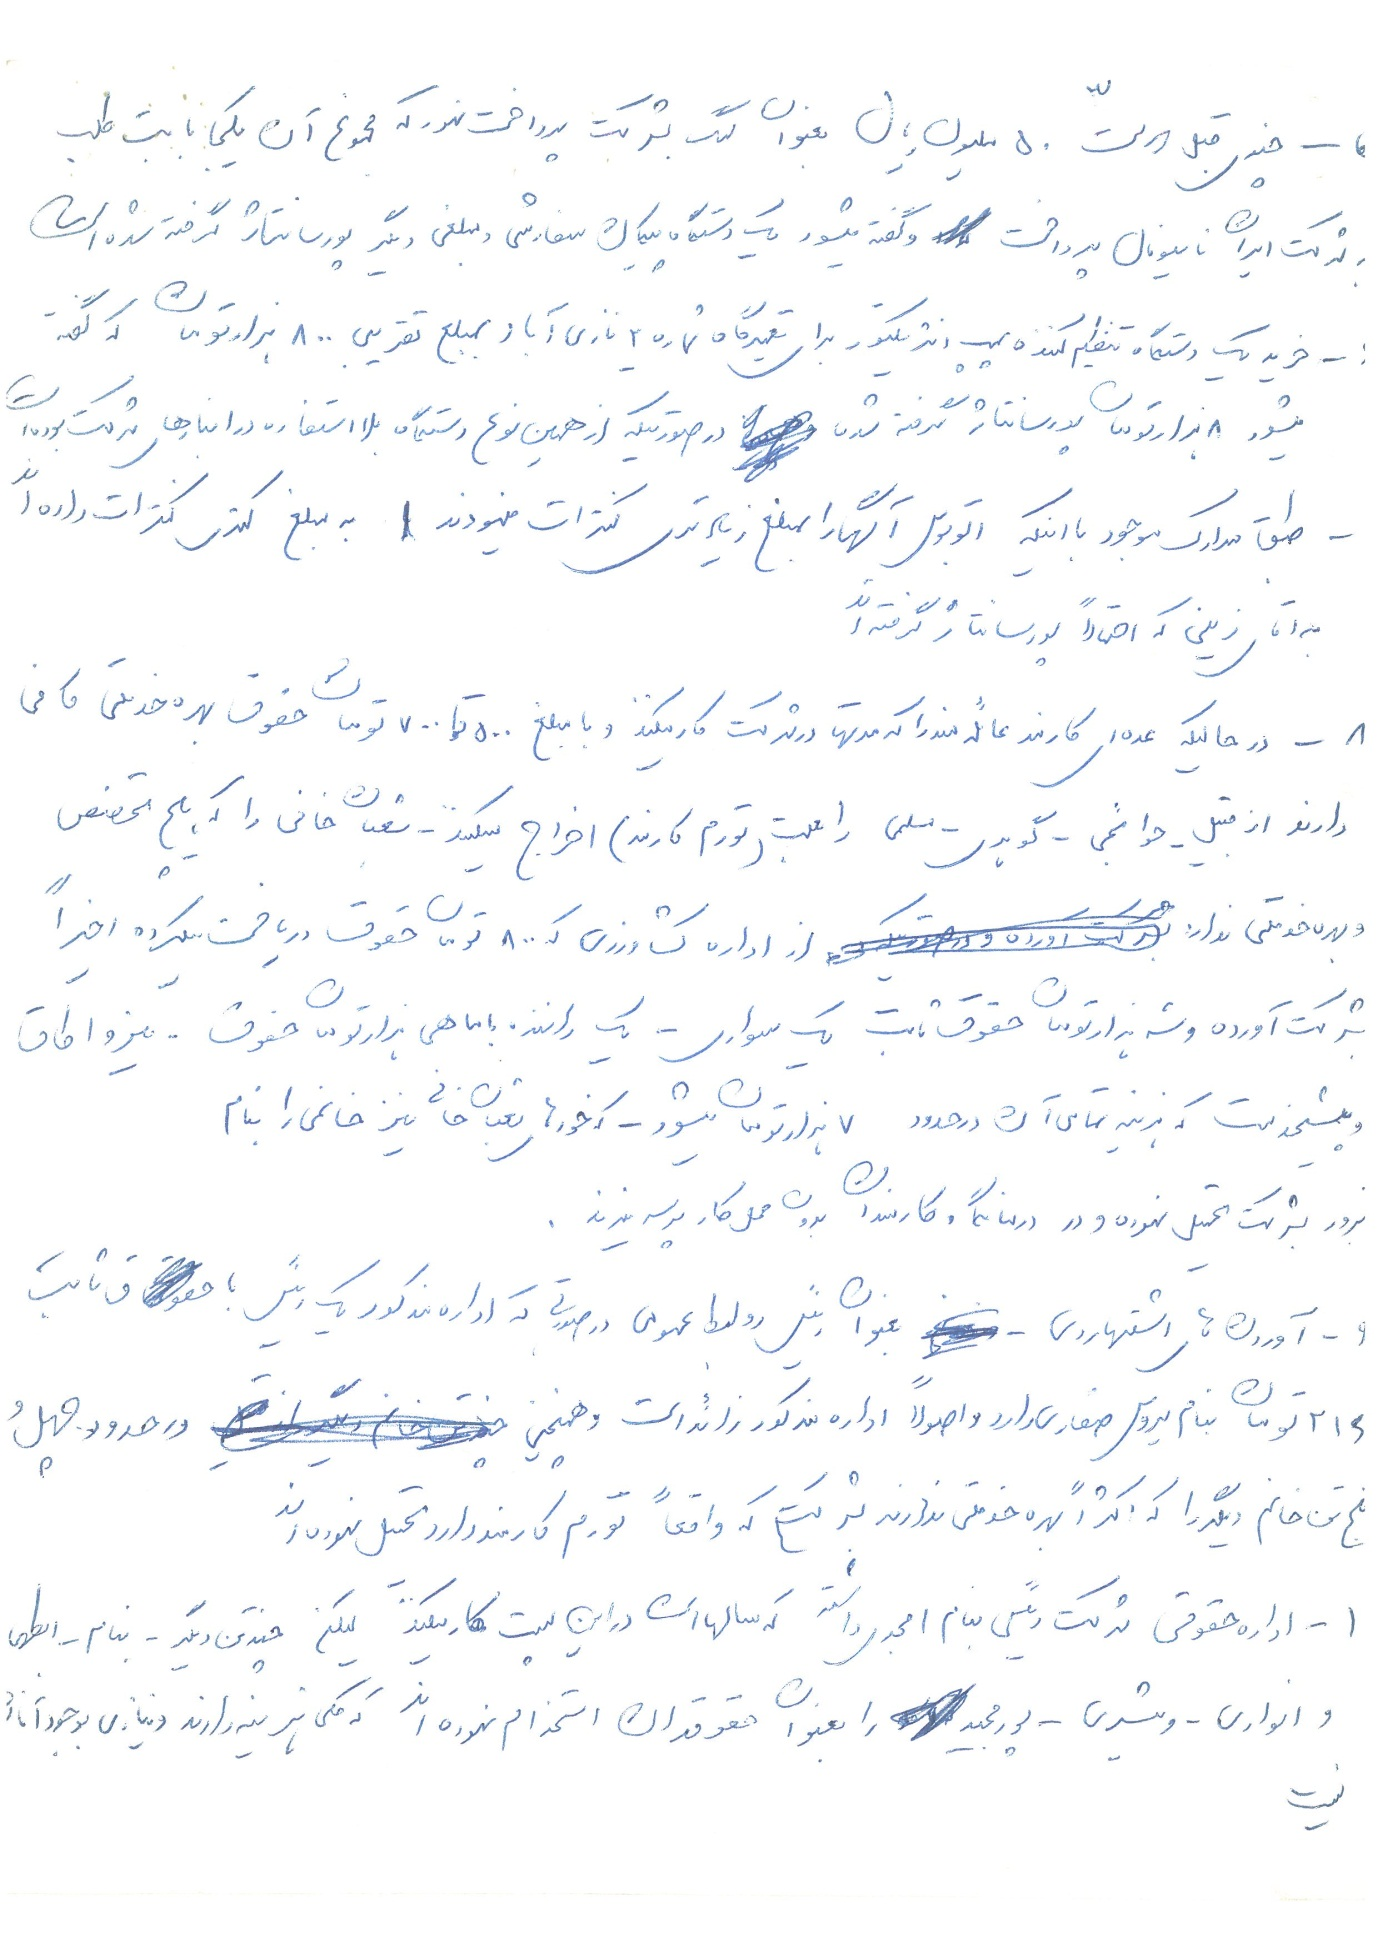 ۵ - چندی قبل دولت ۵۰ میلیون ریال بعنوان کمک بشرکت پرداخت نمود که مجموع آن یکجا بابت طلب
بشرکت ایران ناسیونال پرداخت و گفته میشود یک دستگاه پیکان سفارشی و مبلغی دیگر پورسانتاژ گرفته شده است
۶ - خرید یک دستگاه تنظیم کننده پمپ انژیکتور برای تعمیرگاه شماره ۲ نازی آباد بمبلغ تقریبی ۸۰۰ هزار تومان که گفته
میشود ۸۰ هزار تومان پورسانتاژ گرفته شده در صورتیکه از همین نوع دستگاه بلا استفاده در انبارهای شرکت بوده است
- طبق مدارک موجود با اینکه اتوبوس آگهی را بمبلغ زیادتری کنترات مینمودند به مبلغ کمتری کنترات داده اند
به آقای زینی که احتمالاً پورسانتاژ گرفته اند
۸ - در حالیکه عده ای کارمند عائله مند را که مدتها در شرکت کار میکنند و با مبلغ ۵۰۰ تا ۷۰۰ تومان حقوق بهره خدمتی کافی
دارند از قبیل - جوانبخی - گودرزی - سلمی را بعلت (تورم کارمند) اخراج میکنند - شعبان خانی را که هیچ تخصص
و بهره خدمتی ندارد از اداره کشاورزی که ۸۰۰ تومان حقوق دریافت میکرده اخیراً
بشرکت آورده و سه هزار تومان حقوق ثابت یک سواری - یک راننده با ماهی هزار تومان حقوق - میز و اطاق
و پیشخدمت که هزینه تمامی آن در حدود ۷ هزار تومان میشود - که خود شعبان خانی نیز خانمی را بنام
بزور بشرکت تحمیل نموده و در درمانگاه کارمندان بدون محل کار پرسه میزند .
۹ - آوردن آقای اشتهاردی - بعنوان رئیس روابط عمومی در صورتی که اداره مذکور یک رئیس با حقوق ثابت
۲۱۶ تومان بنام صفاری دارد و اصولاً اداره مذکور زائد است و همچنین در حدود چهل و
پنج تن خانم دیگر را که اکثراً بهره خدمتی ندارند بشرکتی که واقعاً تورم کارمند دارد تحمیل نموده اند
۱ - اداره حقوقی شرکت رئیسی بنام امجدی داشته که سالها است در این پست کار میکند لیکن چند تن دیگر - بنام - ابطحی
و انواری - و مبشری - پورمجید را بعنوان حقوقدان استخدام نموده اند که همگی هزینه دارند و نیازی بوجود آنان
نیست